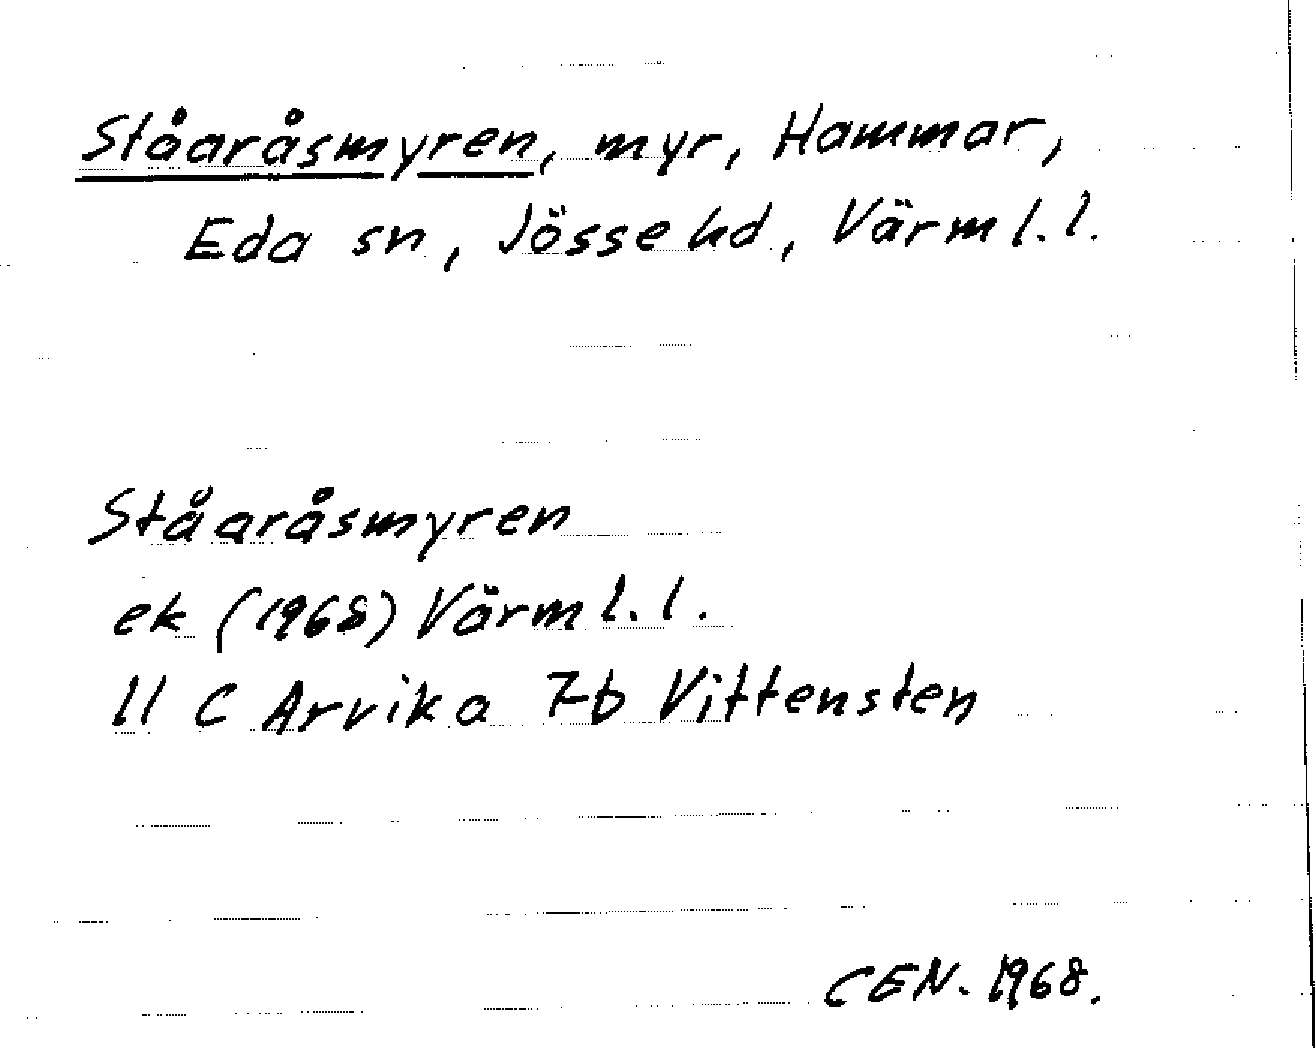 Ståaråsmyren, myr, Hammar,
Eda sn, Jösse hd, Värml. l.
Ståaråsmyren
ek (1968) Värml. l.
11 C Arvika 7b Vittensten
CEN. 1968.